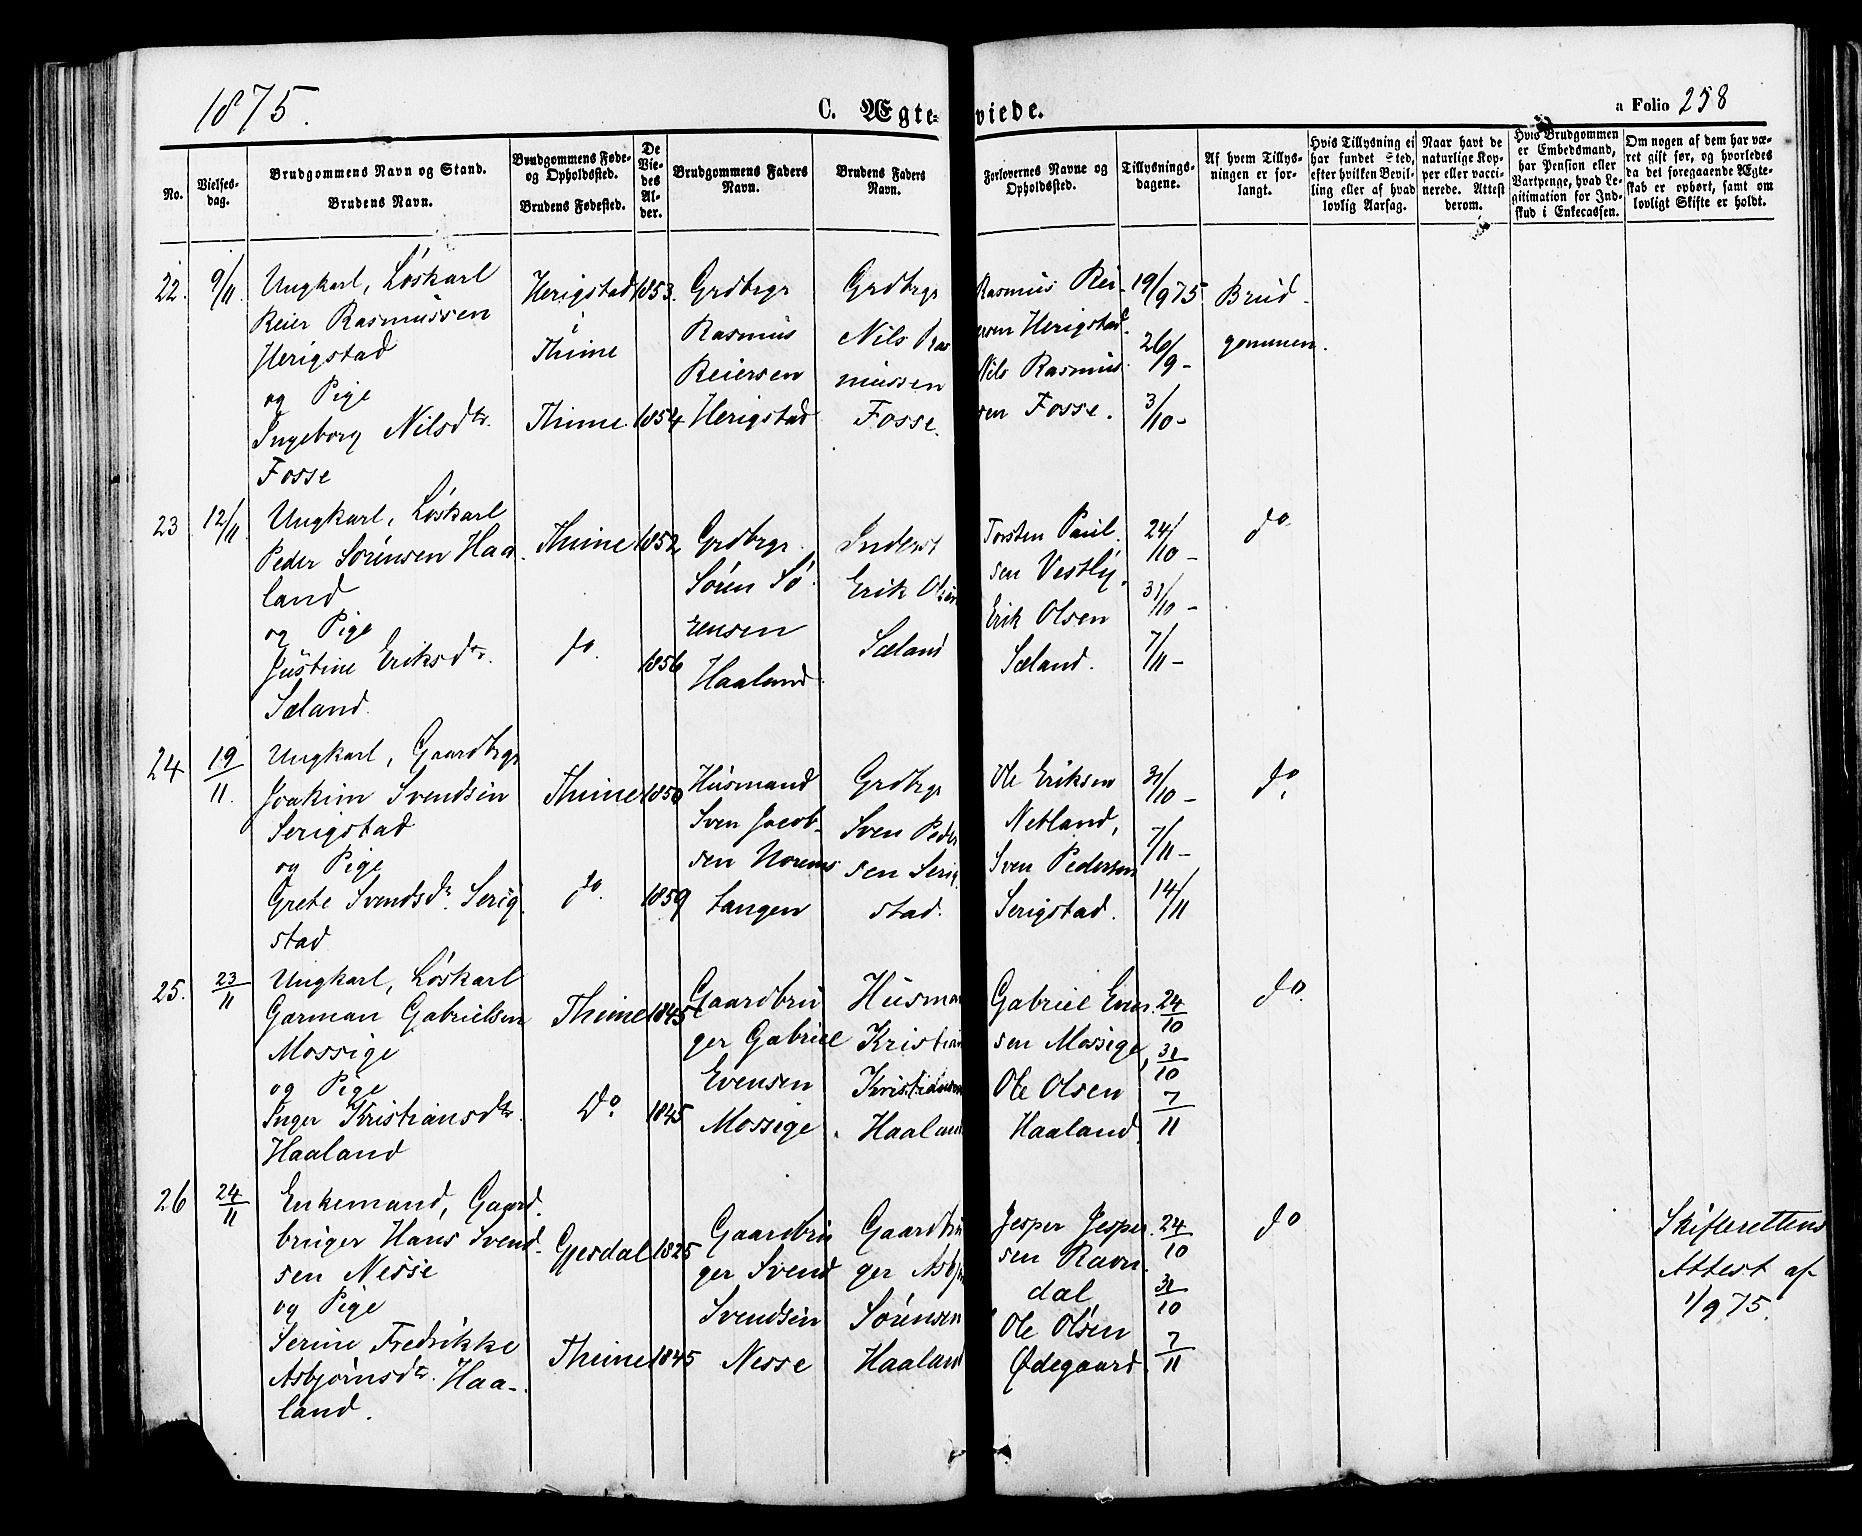 1875.
C. Ægteviede.
a Folio 258
No.
Vielses-
dag.
Brudgommens Navn og Stand.
Brudens Navn.
Brudgommens Føde-
og Opholdssted.
Brudens Fødested.
De
Vie-
des
Al-
der.
Brudgommens Faders
Navn.
Brudens Faders
Navn.
Forlovernes Navne og
Opholdssted.
Tillysnings-
dagene.
Af hvem Tillys-
ningen er for-
langt.
Hvis Tillysning ei
har fundet Sted,
efter hvilken Bevil-
ling eller af hvad
lovlig Aarsag.
Naar havt de
naturlige Kop-
per eller vacci-
nerede. Attest
derom.
Hvis Brudgommen
er Embedsmand,
har Pension eller
Vartpenge, hvad Le-
gitimation for Ind-
skud i Enkecassen.
Om nogen af dem har væ-
ret gift før, og hvorledes
da det foregaaende Ægte-
skab er ophørt, samt om
lovligt Skifte er holdt.
22.
9/11.
Ungkarl, Løskarl
Reier Rasmussen
Herigstad
og Pige
Ingeborg Nilsdtr.
Fosse
Herigstad
i
Thime
Thime
1853.
1854
Grdbrgr
Rasmus
Reiersen
Herigstad
Grdbrgr
Nils Ras
mussen
Fosse.
Rasmus Rei-
ersen Herigstad.
Nils Rasmus-
sen Fosse.
19/9 75
26/9 -
3/10 -
Brud-
gommen.
23
12/11
Ungkarl, Løskarl
Peder Sørensen Haa-
land
og Pige
Justine Eriksdr.
Sæland.
Thime
do.
1852
1856
Grdbrgr.
Søren Sø-
rensen
Haaland.
Inderst
Erik Olsen
Sæland
Torsten Paul-
sen Vestly.
Erik Olsen
Sæland.
24/10 -
31/10 -
7/11 -
do.
24
19/11.
Ungkarl, Gaardbrgr
Joakim Svendsen
Serigstad
og Pige
Grete Svendsdr. Serig-
stad
Thime
do.
1850
1859
Husmand
Sven Jacob-
sen Norems
tangen
Grdbrgr
Sven Peder
sen Serig-
stad.
Ole Eriksen
Netland,
Sven Pedersen
Serigstad.
31/10 -
7/11 -
14/11
do.
25.
23/11
Ungkarl, Løskarl
Garman Gabrielsen
Mossige
og Pige
Inger Kristiansdtr.
Haaland
Thime
Do.
1845
1845
Gaardbru
ger Gabriel
Evensen
Mossige
Husman
Kristian
Kristiansen
Haaland
Gabriel Even-
sen Mossige,
Ole Olsen
Haaland.
24/10
31/10
7/11
do.
26
24/11
Enkemand, Gaard-
bruger Hans Svend-
sen Nesse
og Pige
Serine Fredrikke
Asbjørnsdtr. Haa-
land.
Gjesdal
Thime
1825
1845
Gaardbru
ger Svend
Svendsen
Nesse
Gaardbru
ger Asbjør
Sørensen
Haaland
Jesper Jesper-
sen Ravn-
dal
Ole Olsen
Ødegaard
24/10
31/10
7/11
do
Skifterettens
Attest af
1/9 75.